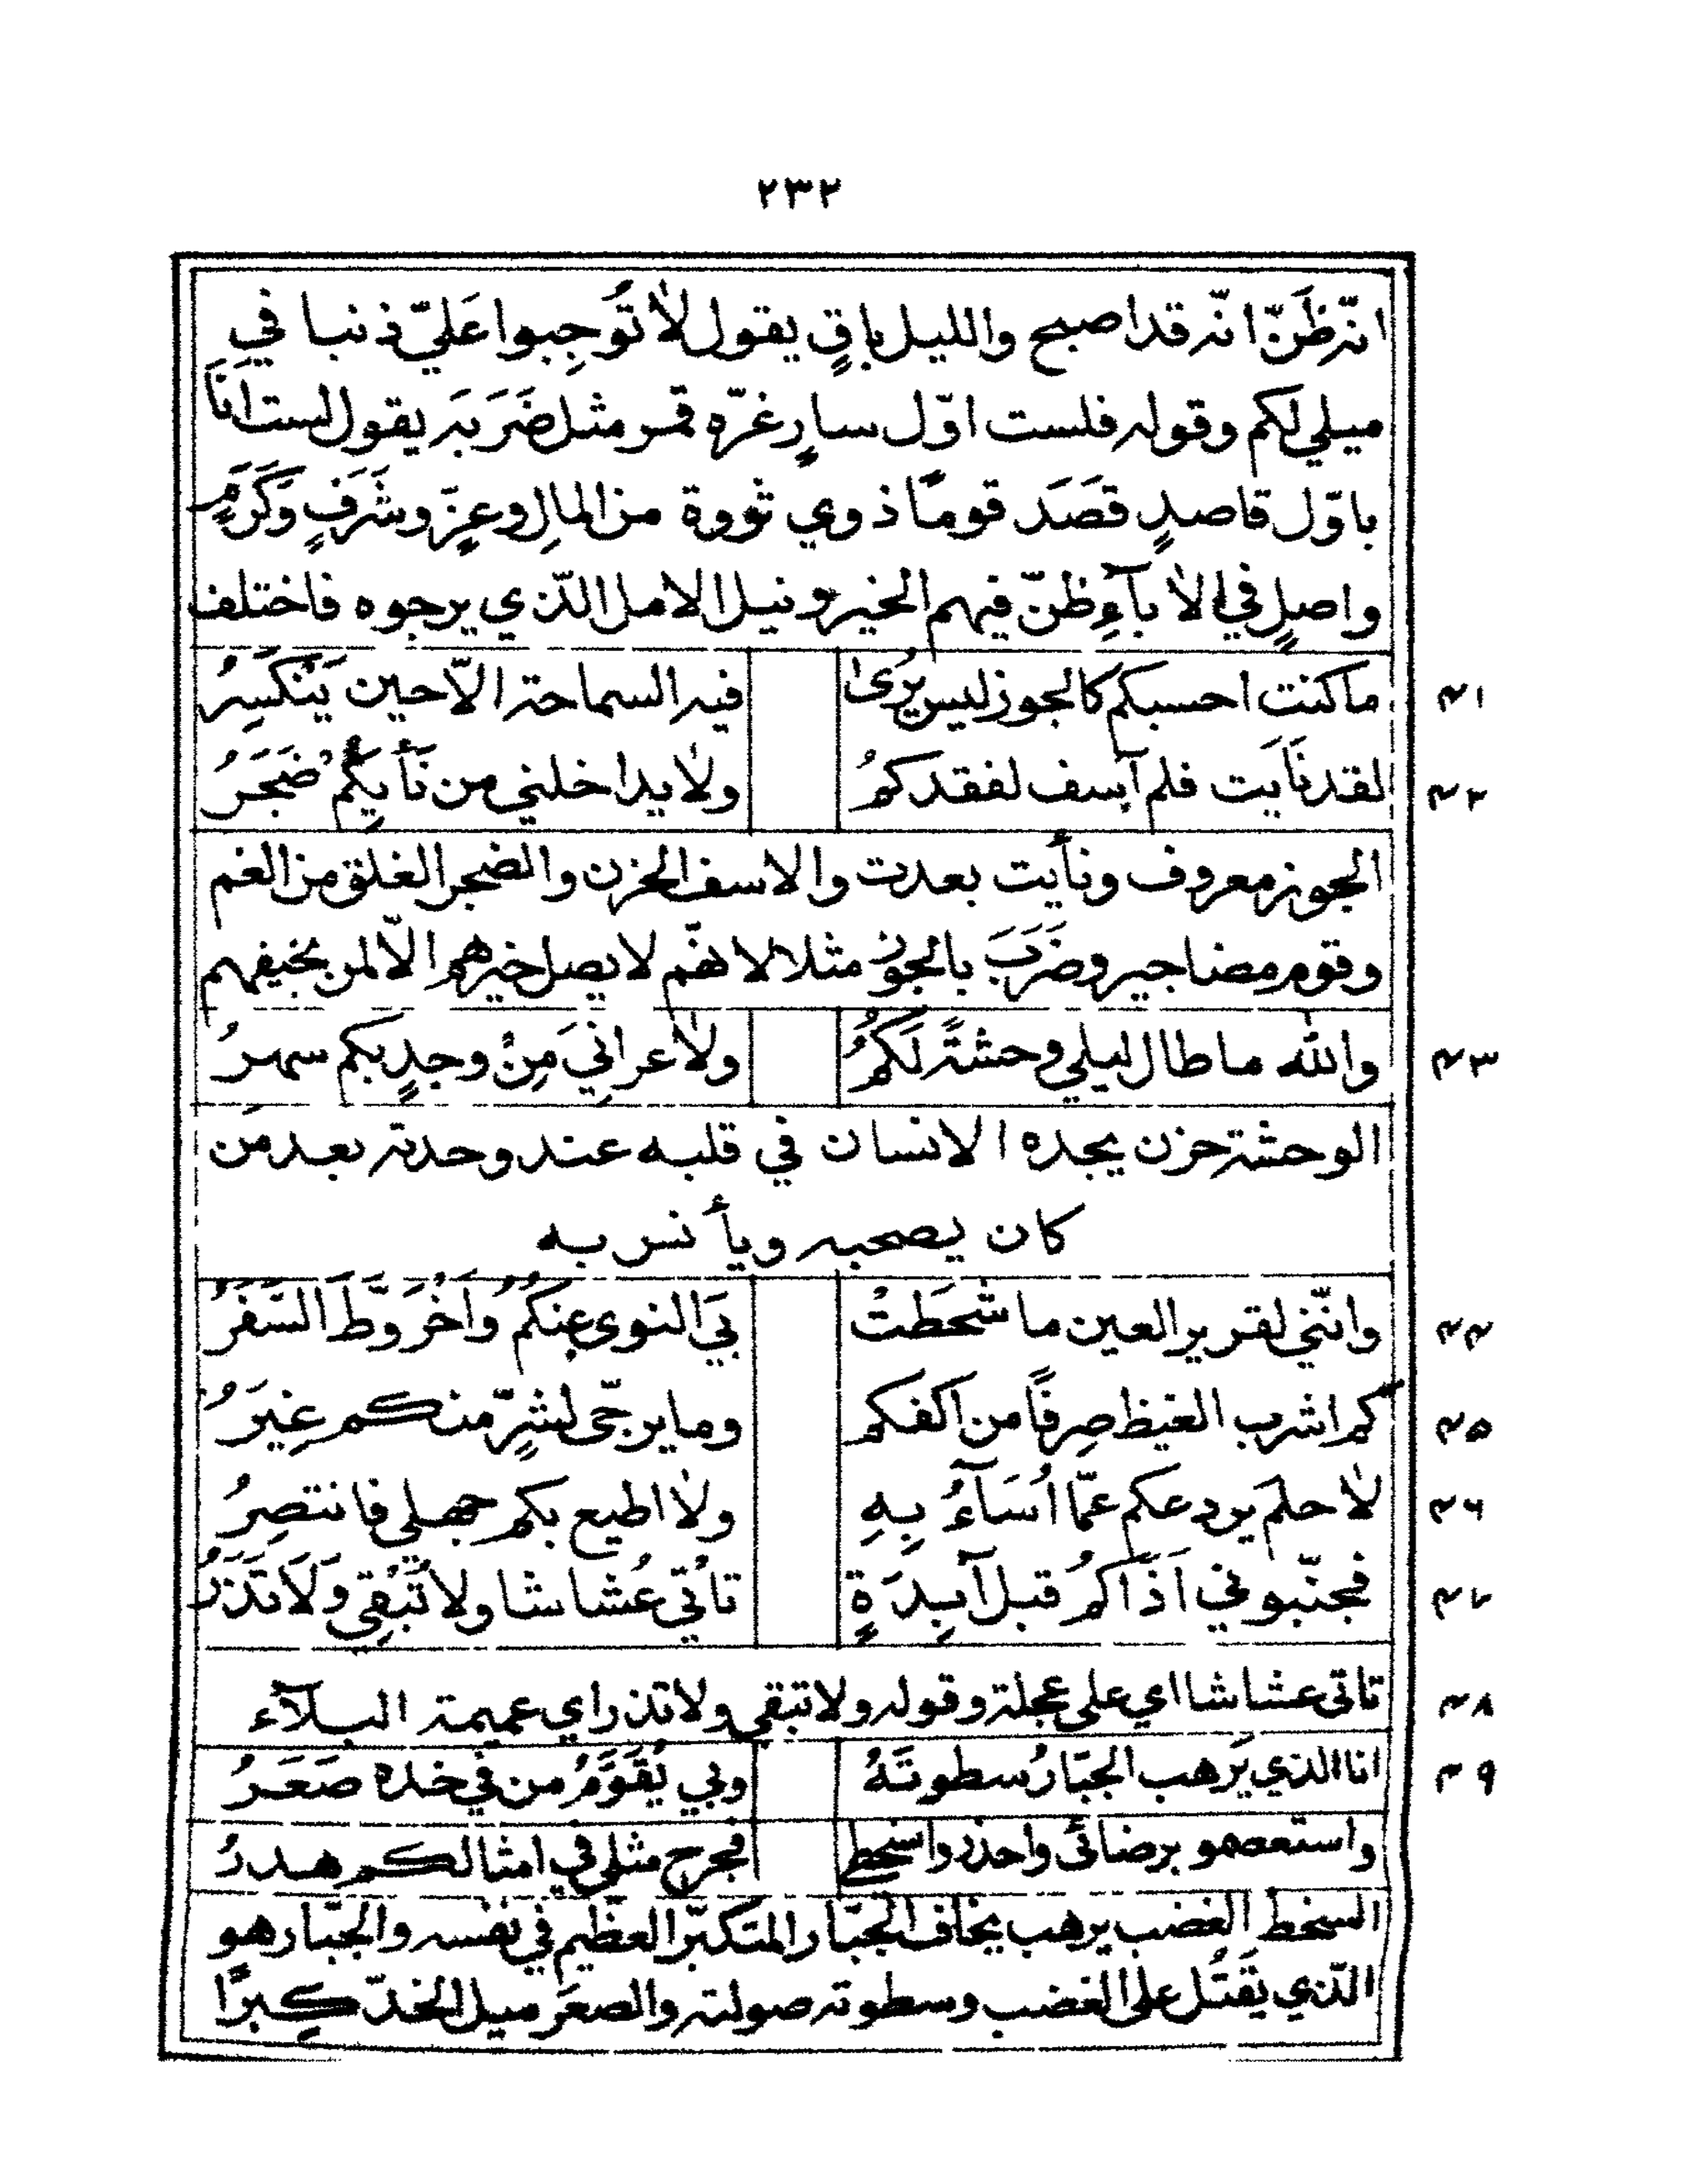 ٢٣٢
انّه ظَنّ انّه قد اصبح والليل باقٍ يقول لأ تُوجِبوا عَليّ ذنبا في
ميلي لكم وقوله فلست اوّل سارٍ غرّه قمر مثل ضَرَبَه يقول لست اَنَا
باوّل قاصدٍ قصَدَ قومًا ذوي ثروة من المالِ وعِزّ وشَرَفٍ وَكَرَمٍ
واصلٍ في الأبآءِ ظنّ فيهم الخير ونيل الامل الذي يرجوه فاختلف
٤١ ما كنت احسبكم كالجوز ليس يُرىٰ فيه السماحة الّا حين يَنْكَسِرُ
٤٢ لقد نَأَيت فلم آسف لفقدكمُ ولأ يداخلني من نَأيِكُمُ ضَجَرُ
الجوز معروف ونأيت بعدت والاسف الحزن والضجر الغلق من الغم
وقوم مضاجير وضَرَبَ بالجوز مثلا لانهّم لا يصل خيرهم الّا لمن يخيفهم
٤٣ والله ما طال ليلي وحشةً لَكُمُ ولأ عرانيَ مِنْ وجدٍ بكم سهرُ
الوحشة حزن يجده الانسان في قلبه عند وحدته بعد مَن
كان يصحبه ويأنس به
٤٤ وانّني لقرير العين ما شحَطَتْ بيَ النوى عنكُمُ واَخْرَوَّطَ السَفَرُ
٤٥ كم اشرب الغيظ صِرفًا من اكفكم وما يرجّى لشرٍّ منكم غِيَرُ
٤٦ لأ حلمَ يردعكم عمّا اُسَآءُ بِهِ ولأ اطيع بكم جهلي فانتصِرُ
٤٧ فجنّبوني اَذَاكمُ قبل آبِدَةٍ تأتي عُشاشا ولا تُبْقِي وَلَا تَذَرُ
٤٨ تاتى عشاشا اي على عجلة وقوله ولا تبقي ولا تذر اي عميمة البلآء
٤٩ انا الذي يَرهب الجبّارُ سطوتَهُ وبي يُقَوَّمُ من في خده صَعَرُ
واستعصمو برضائى واحذروا سخطي فجرح مثلي في امثالكم هدرُ
السخط الغضب يرهب يخاف الجبّار المتكبّر العظيم في نفسه والجبّار هو
الذي يَقتُل على الغضب وسطوته صولته والصعَر ميل الخدّ كِبرًا